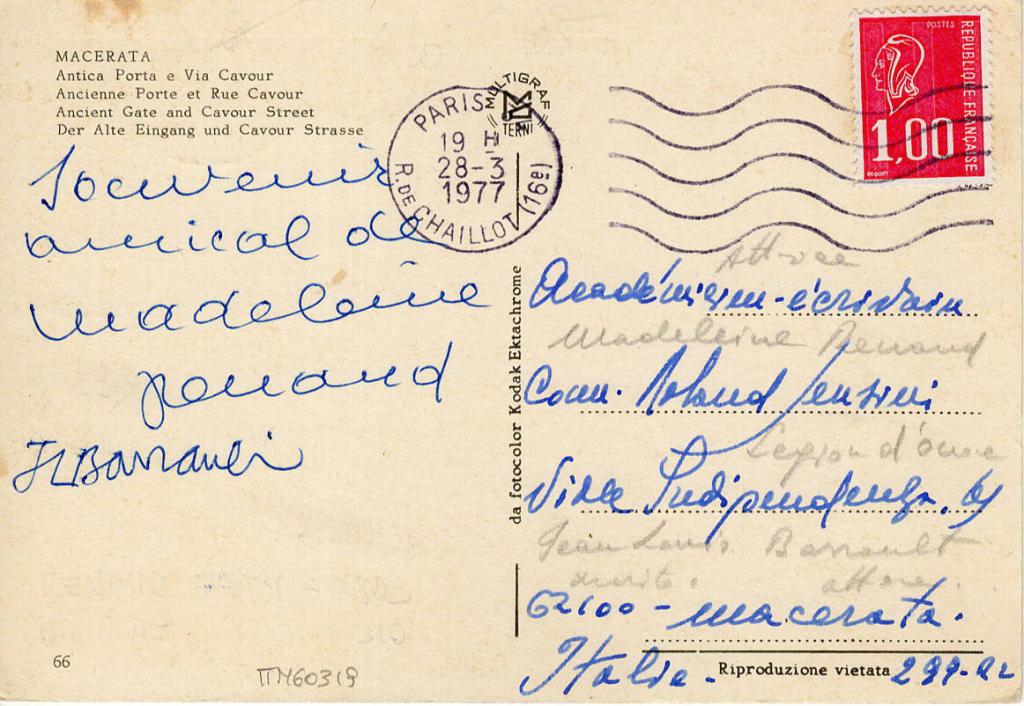 MACERATA
Antica Porta e Via Cavour
Ancienne Porte et Rue Cavour
Ancient Gate and Cavour Street
Der Alte Eingang und Cavour Strasse
Souvenir
amical de
madeleine
renaud
JLBarrault
66
TTM60319
MULTIGRAF
TERNI
PARIS
19 H
28-3
1977
R. DE CHAILLOT (16e)
da fotocolor Kodak Ektachrome
POSTES
REPUBLIQUE FRANÇAISE
1,00
BEQUET
Attrice
Académicien-écrivain
Madeleine Renaud
Com. Roland
Légion d'
Viale Indipendenza.
Jean Louis Barrault
marito. attore.
62100 - macerata.
Italie.
Riproduzione vietata